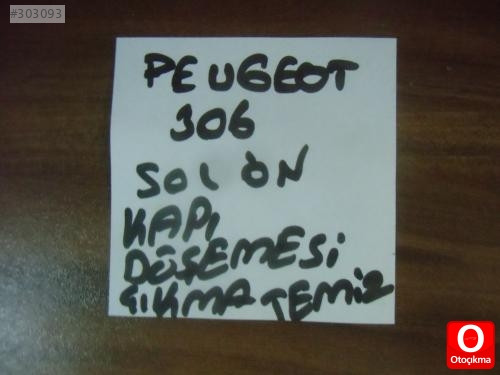 #303093
PEUGEOT
306
SOL ÖN
KAPI
DÖŞEMESİ
ÇIKMA TEMİZ
O
Otoçıkma